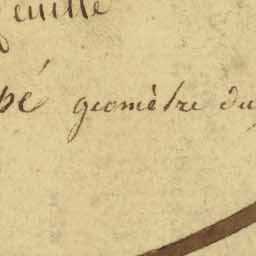 feuille
pé geomètre du